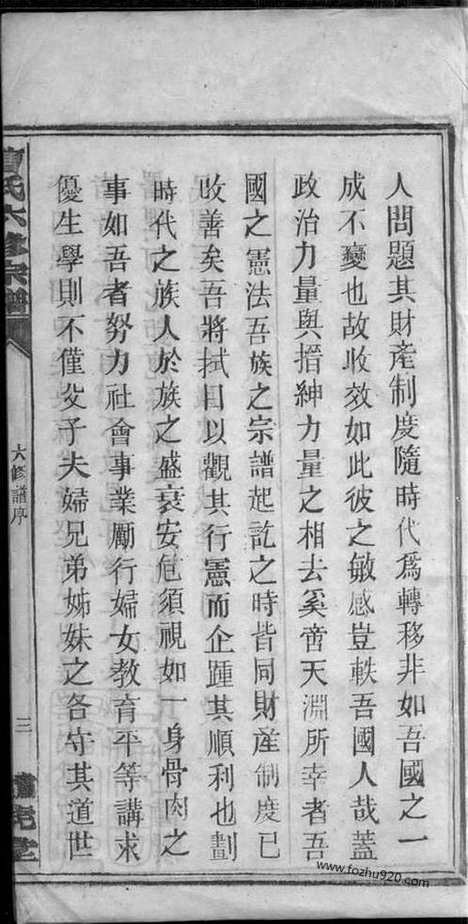 人問題其財產制度隨時代爲轉移非如吾國之一
成不變也故收效如此彼之敏感豈軼吾國人哉蓋
政治力量與搢紳力量之相去奚啻天淵所幸者吾
國之憲法吾族之宗譜起訖之時皆同財產制度已
改善矣吾將拭目以觀其行憲而企踵其順利也劃
時代之族人於族之盛衰安危須視如一身骨肉之
事如吾者努力社會事業勵行婦女教育平等講求
優生學則不僅父子夫婦兄弟姊妹之各守其道世
氏六修宗譜
六修譜序
三
www.fozhu920.com